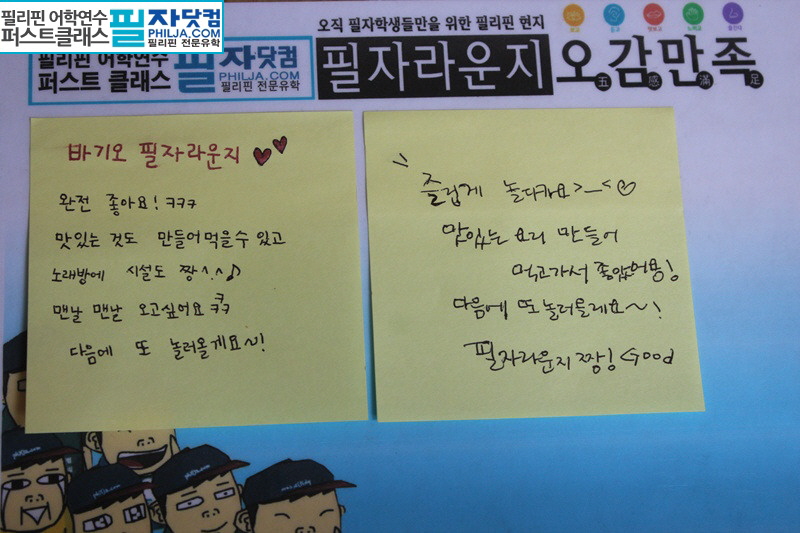 필리핀 어학연수
퍼스트클래스
필자닷컴
PHILJA.COM
필리핀 전문유학
필리핀 어학연수
퍼스트 클래스
필자닷컴
PHILJA.COM
필리핀 전문유학
오직 필자학생들만을 위한 필리핀 현지
필자라운지
오감만족
五 感 滿 足
바기오 필자라운지
완전 좋아요! ㅋㅋㅋ
맛있는 것도 만들어먹을수 있고
노래방에 시설도 짱^.^♪
맨날 맨날 오고싶어요 ㅋㅋㅋ
다음에 또 놀러올게요~!
즐겁게 놀다카요>_<
맛있는 요리 만들어
먹고가서 좋았어용!
다음에 또 놀러올게요~!
필자라운지 짱! Good
philja.com
philja.com
philja.com